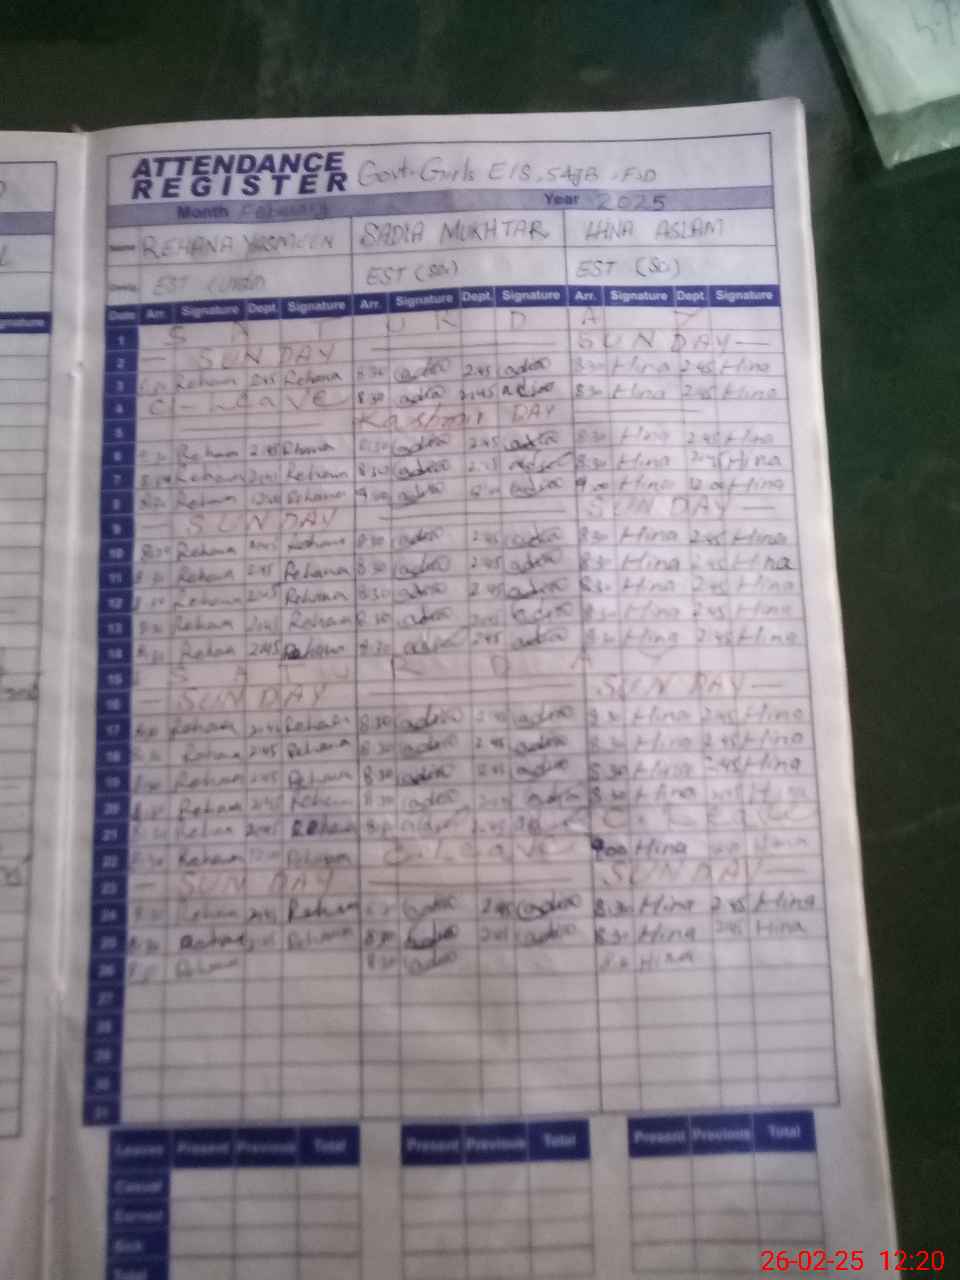 ATTENDANCE REGISTER Govt. Girls E/S, 54JB, FSD
Month February Year 2025
Name REHANA YASMEEN SADIA MUKHTAR HINA ASLAM
EST EST (Sci) EST (Sci)
Date Arr. Signature Dept. Signature Arr. Signature Dept. Signature Arr. Signature Dept. Signature
1 S A T U R D A Y
2 — SUNDAY SUNDAY —
3 Rehana 2.45 Rehana 8:30 adia 2.45 adia 8:30 Hina 2.45 Hina
4 C - Leave 8:30 adia 2:45 adia 8:30 Hina 2.45 Hina
5 Kashmir DAY
6 8:30 Rehana 2.45 Rehana 8:30 adia 2.45 adia 8:30 Hina 2.45 Hina
7 Rehana 2:45 Rehana 8:30 adia 2.45 8:30 Hina 2:45 Hina
8 Rehana 12:00 Rehana 9:00 adia 12:00 adia 9:00 Hina 12:00 Hina
9 — SUNDAY SUNDAY —
10 8:30 Rehana Rehana 8:30 adia 2.45 adia 8:30 Hina 2.45 Hina
11 8:30 Rehana 2.45 Rehana 8:30 adia 2.45 adia 8:30 Hina 2.45 Hina
12 Rehana 2:45 Rehana 8:30 adia 2.45 adia 8:30 Hina 2.45 Hina
13 8:30 Rehana 2:45 Rehana 8:30 adia 2:45 adia 8:30 Hina 2.45 Hina
14 8:30 Rehana 2:45 Rehana 8:30 adia 2:45 adia 8:30 Hina 2.45 Hina
15 S A T U R D A Y
16 — SUNDAY SUNDAY —
17 Rehana 2:45 Rehana 8:30 adia 2.45 adia 8:30 Hina 2.45 Hina
18 Rehana 2:45 Rehana 8:30 adia 2.45 adia 8:30 Hina 2.45 Hina
19 8:30 Rehana 2:45 Rehana 8:30 adia 2:45 adia 8:30 Hina 2.45 Hina
20 Rehana 2:45 Rehana 8:30 adia 2:45 adia 8:30 Hina 2:45 Hina
21 8:30 Rehana 2:45 Rehana 2.45 C. Leave
22 8:30 Rehana Rehana C. Leave 9:00 Hina Hina
23 — SUNDAY SUNDAY —
24 8:30 Rehana 2:45 Rehana adia 2:45 adia 8:30 Hina 2:45 Hina
25 8:30 Rehana 2:45 Rehana 8:30 adia 2:45 adia 8:30 Hina 2:45 Hina
26 Rehana 8:30 adia 8:30 Hina
27
28
29
30
31
Leaves Present Previous Total Present Previous Total Present Previous Total
Casual
Earned
Sick
Total
26-02-25 12:20